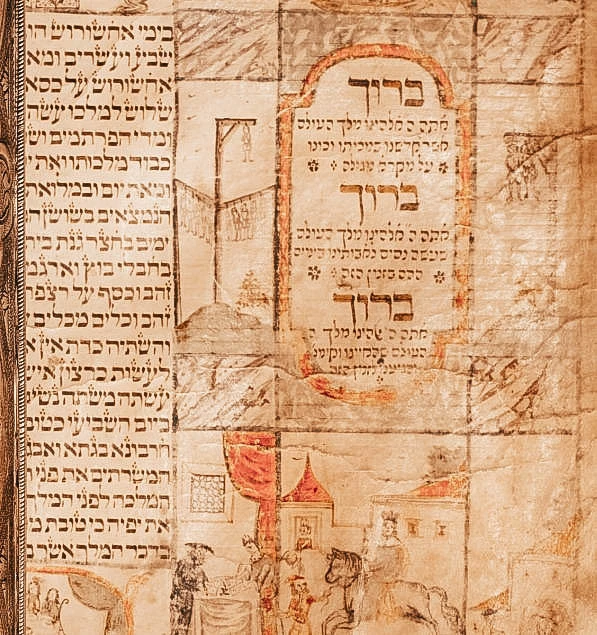 ברוך
אתה ה' אלהינו מלך העולם
אשר קדשנו במצותיו וצונו
על מקרא מגילה
ברוך
אתה ה' אלהינו מלך העולם
שעשה נסים לאבותינו בימים
ההם בזמן הזה
ברוך
אתה ה' אלהינו מלך ה
העולם שהחיינו וקימנו
לזמן הזה
בימי אחשורוש הו
שבע ועשרים ומא
אחשורוש על כסא
שלוש למלכו עשה
ומדי הפרתמים וש
כבוד מלכותו ואת י
ומאת יום ובמלואת
הנמצאים בשושן ה
ימים בחצר גנת בי
בחבלי בוץ וארגמ
זהב וכסף על רצפת
זהב וכלים מכלים
והשתיה כדת אין א
לעשות כרצון איש
עשתה משתה נשי
ביום השביעי כטוב
חרבונא בגתא ואבג
המשרתים את פני ה
המלכה לפני המלך
את יפיה כי טובת מ
בדבר המלך אשר ב